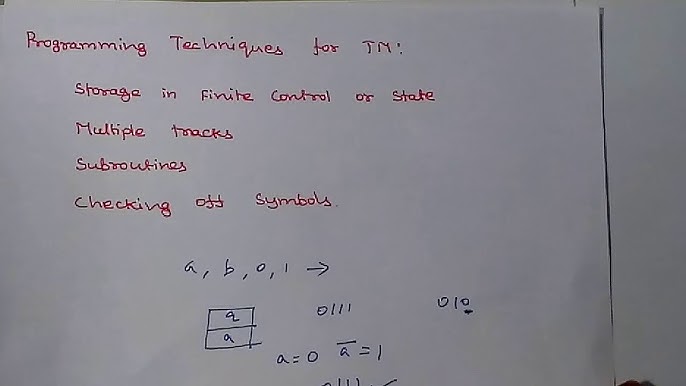 Programming Techniques for TM:
Storage in Finite Control or State
Multiple tracks
Subroutines
Checking off Symbols.
a, b, 0, 1 →
q
a
0111
010
a=0 a̅=1
0111 ✓